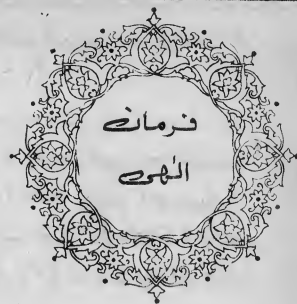 فرمان
الٰهی